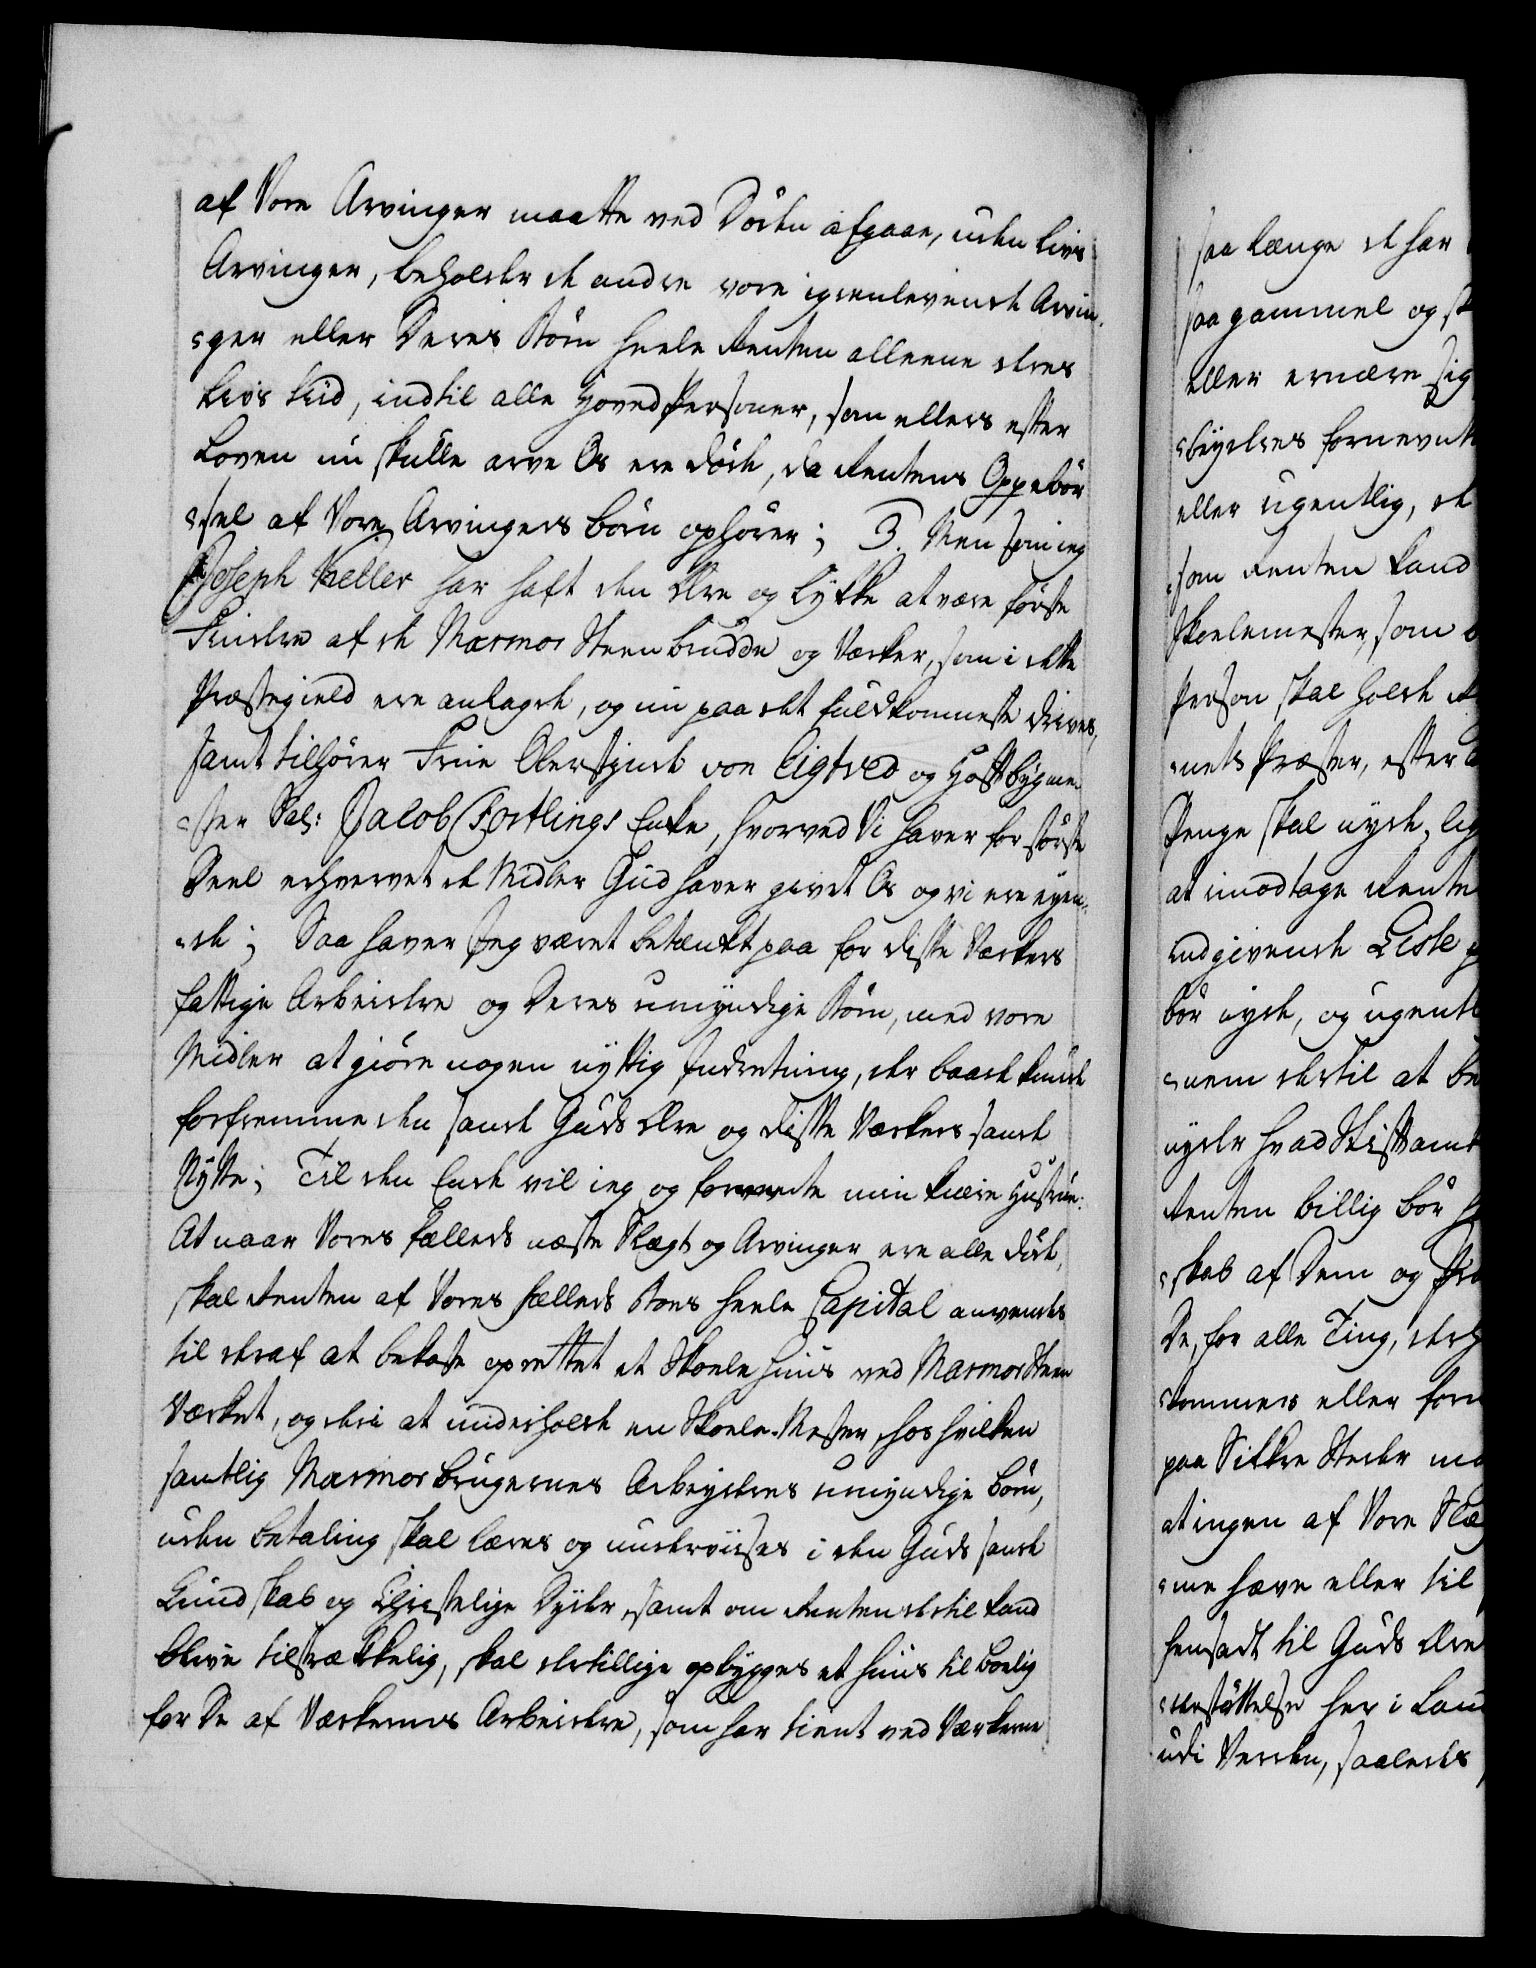 af Vore Arvinger maatte ved Döden afgaae, uden Livs
Arvinger, beholder de andre vore igienlevende Arvin-
ger eller Deres Börn heele Renten alleene deres
Livs tiid, indtil alle HovedPersoner, som ellers efter
Loven nu skulle arve Os ere döde, da Rentens Oppebör-
sel af Vore Arvingers börn ophörer; 3. Men som ieg
Joseph Keller har haft den Ære og Lykke at være förste
Findere af de Marmor Steenbrudde og Værker, som i dette
Præstegield ere anlagde, og nu paa det fuldkommeste drives,
samt tilhører Frue Oberstinde von Eigtved og Hofbygme-
ster Sal: Jacob Fortlings Enke, hvorved Vi haver for störste
Deel erhvervet de Midler Gud haver givet Os og vi ere eyen-
de; Saa haver Jeg været betænkt paa for disse Værkers
fattige Arbeidere og Deres umyndige Börn, med vore
Midler at giöre nogen nyttig Indretning, der baade kunde
forfremme den sande Guds Ære og disse Værkers sande
Nytte; Til den Ende vil ieg og formente min kiære Hustrue:
At naar Vores fælleds næste Slægt og Arvinger ere alle döde,
skal Renten af Vores fælleds Boes heele Capital anvendes
til deraf at bekoste oprettet et Skoele huus ved MarmorSteen
Værket, og deri at underholde en Skoele-Mester, hos hvilken
samtlig Marmorbrugernes Arbeyderes umyndige börn,
uden betaling skal læres og underviises i den Guds sande
Kundskab og Christelige Dyder, samt om Renten dertil kand
blive tilstrækkelig, skal dertillige opbygges et huus til boelig
for De af Værkernes Arbeidere, som har tient ved Værkerne
saa længe de har
saa gammel og
eller ernære sig
beyderes fornevnte
eller ugentlig, de
som Renten kand
Skoelemester, som
Person skal holde
nets Præster, efter
Penge skal nyde,
at imodtage Rente
indgivende Liste
bör nyde, og ugentl
nem dertil at be
nyder hvad Stiftamt
Renten billig bör
skab af Dem og
De, for alle Ting,
kommers eller
paa Sikkre Steder
at ingen af Vore Slæ
me hæve eller til
hensadt til Guds Ære
derstöttelse her i
udi Verden, saaledes